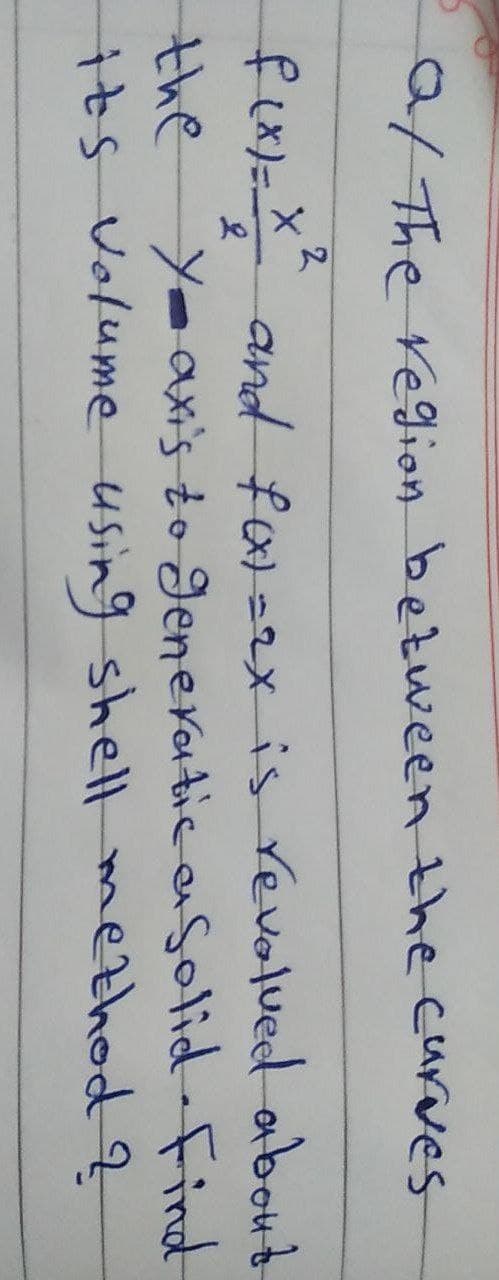 Q/ The region between the curves
f(x)=x²/2 and f(x)=2x is revolved about
the y-axis to generatic a solid. Find
its volume using shell method?